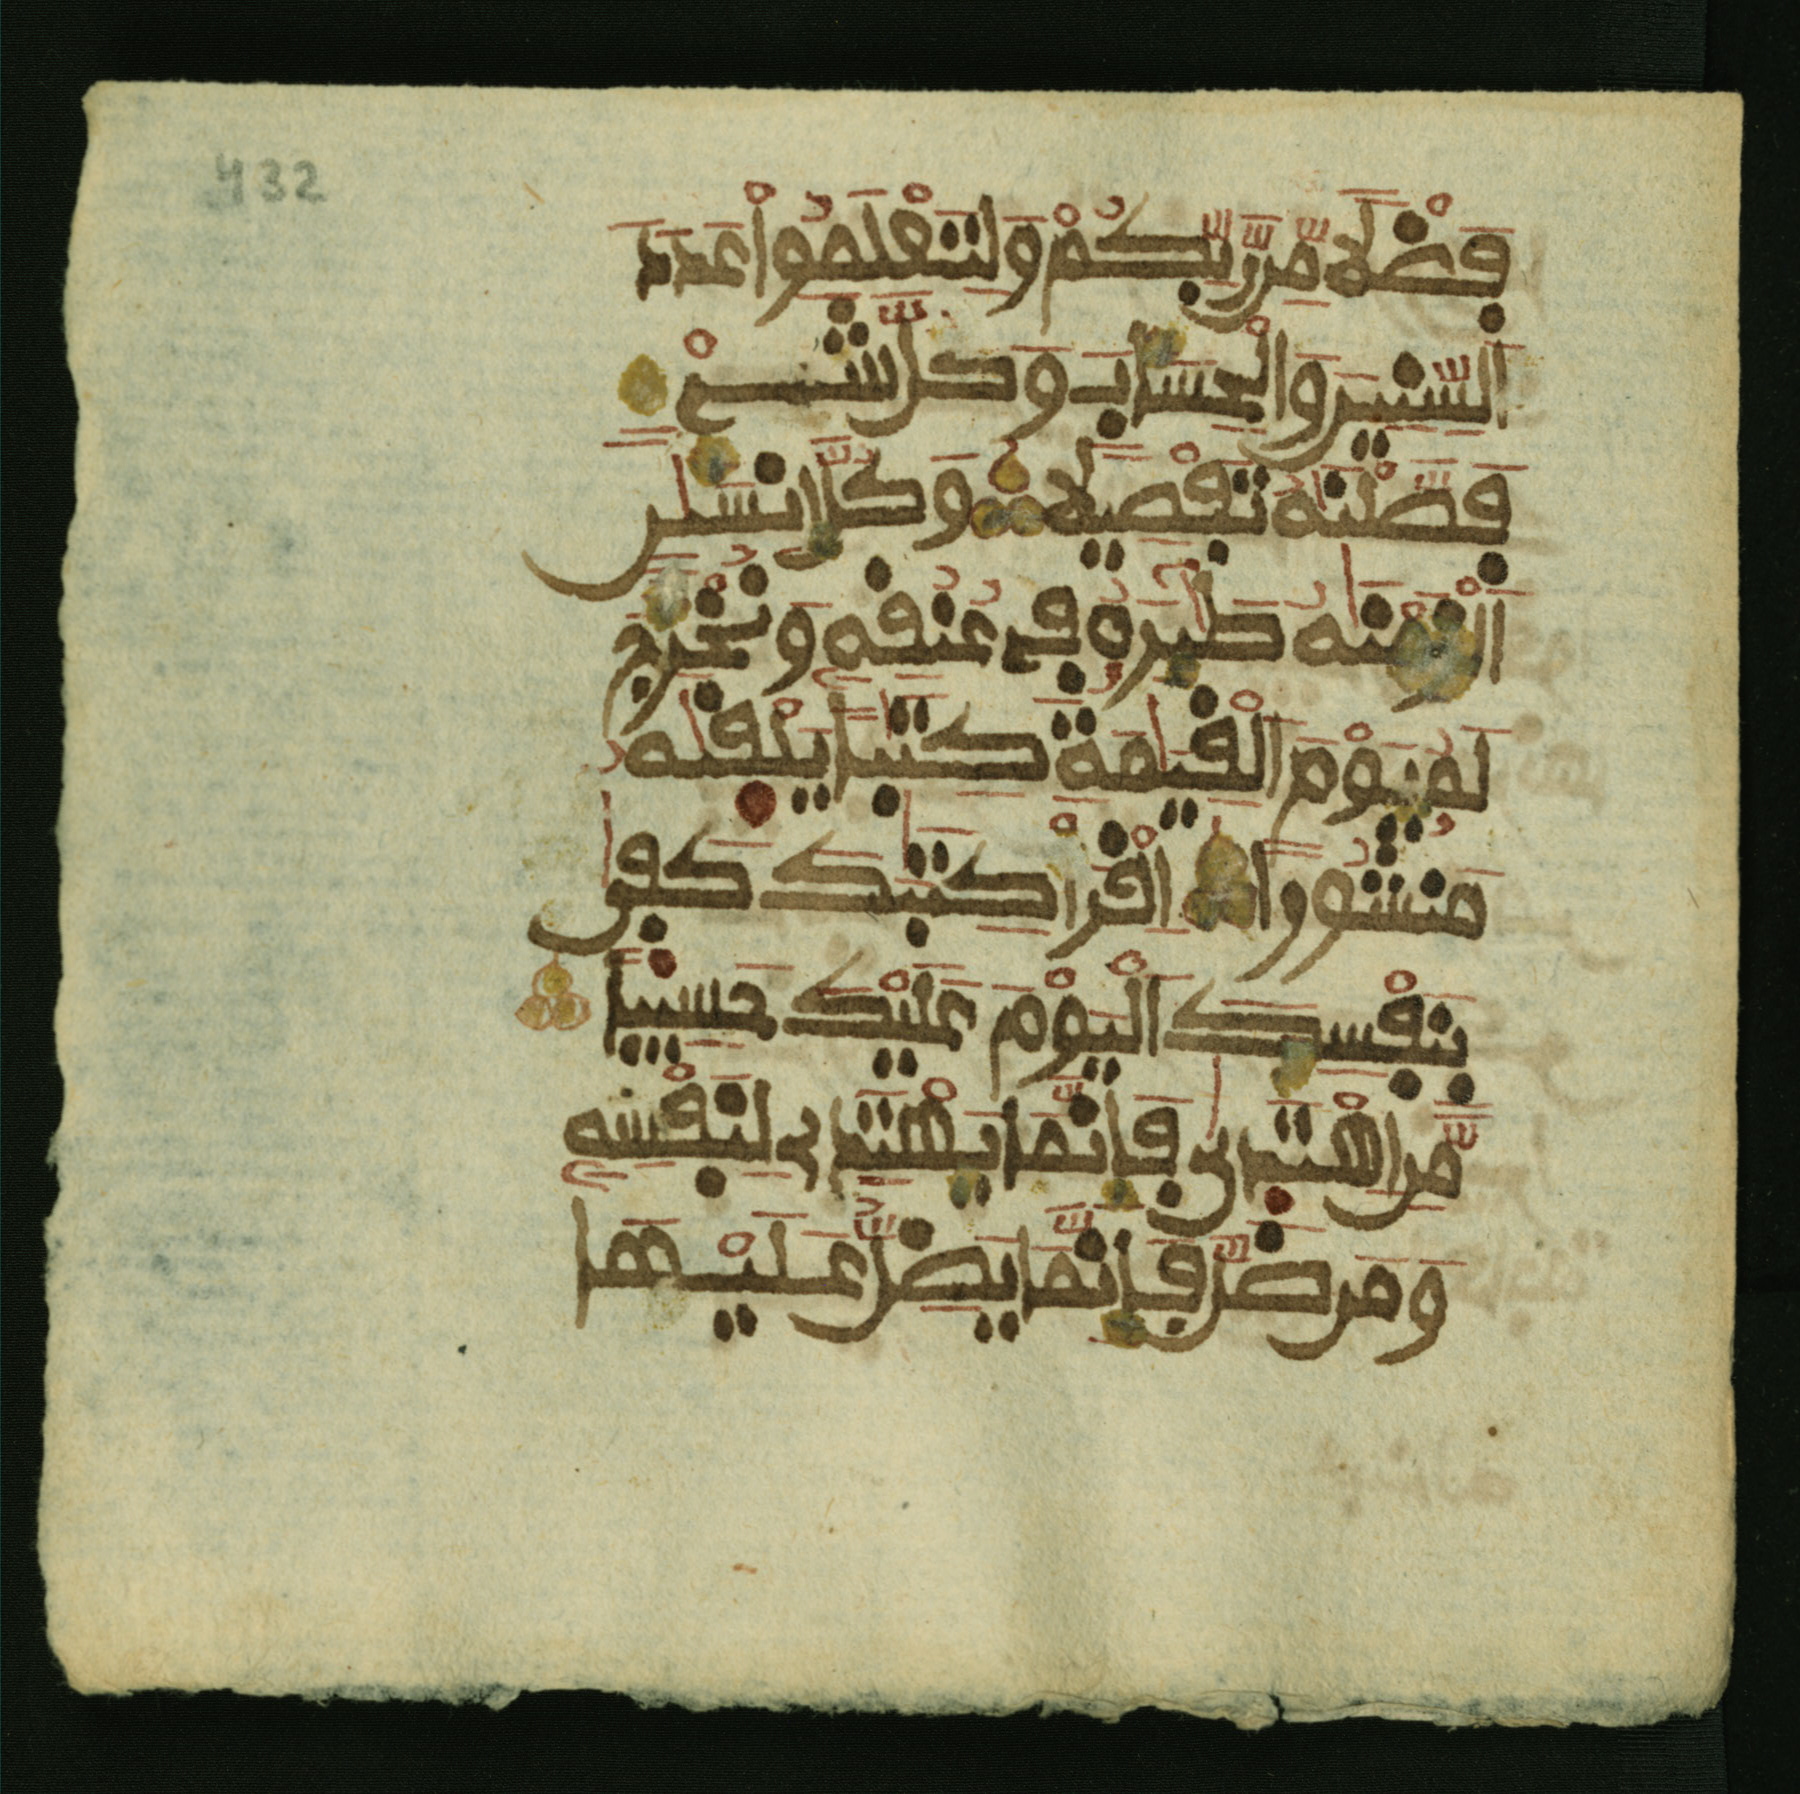 432
فَضْلًا مِّن رَّبِّكُمْ وَلِتَعْلَمُواْ عَدَدَ
اَ۬لسِّنِينَ وَالْحِسَابَ وَكُلَّ شَےْءٖ
فَصَّلْنَٰهُ تَفْصِيلًا وَكُلَّ إِنسَٰنٍ
اَلْزَمْنَٰهُ طَٰٓئِرَهُۥ فِے عُنُقِهِۦ وَنُخْرِجُ
لَهُۥ يَوْمَ اَ۬لْقِيَٰمَةِ كِتَٰباً يَلْقَىٰهُ
مَنشُوراً اِ۪قْرَأْ كِتَٰبَكَ كَفَىٰ
بِنَفْسِكَ اَ۬لْيَوْمَ عَلَيْكَ حَسِيباً
مَّنِ اِ۪هْتَدَىٰ فَإِنَّمَا يَهْتَدِے لِنَفْسِهِۦ
وَمَن ضَلَّ فَإِنَّمَا يَضِلُّ عَلَيْهَا